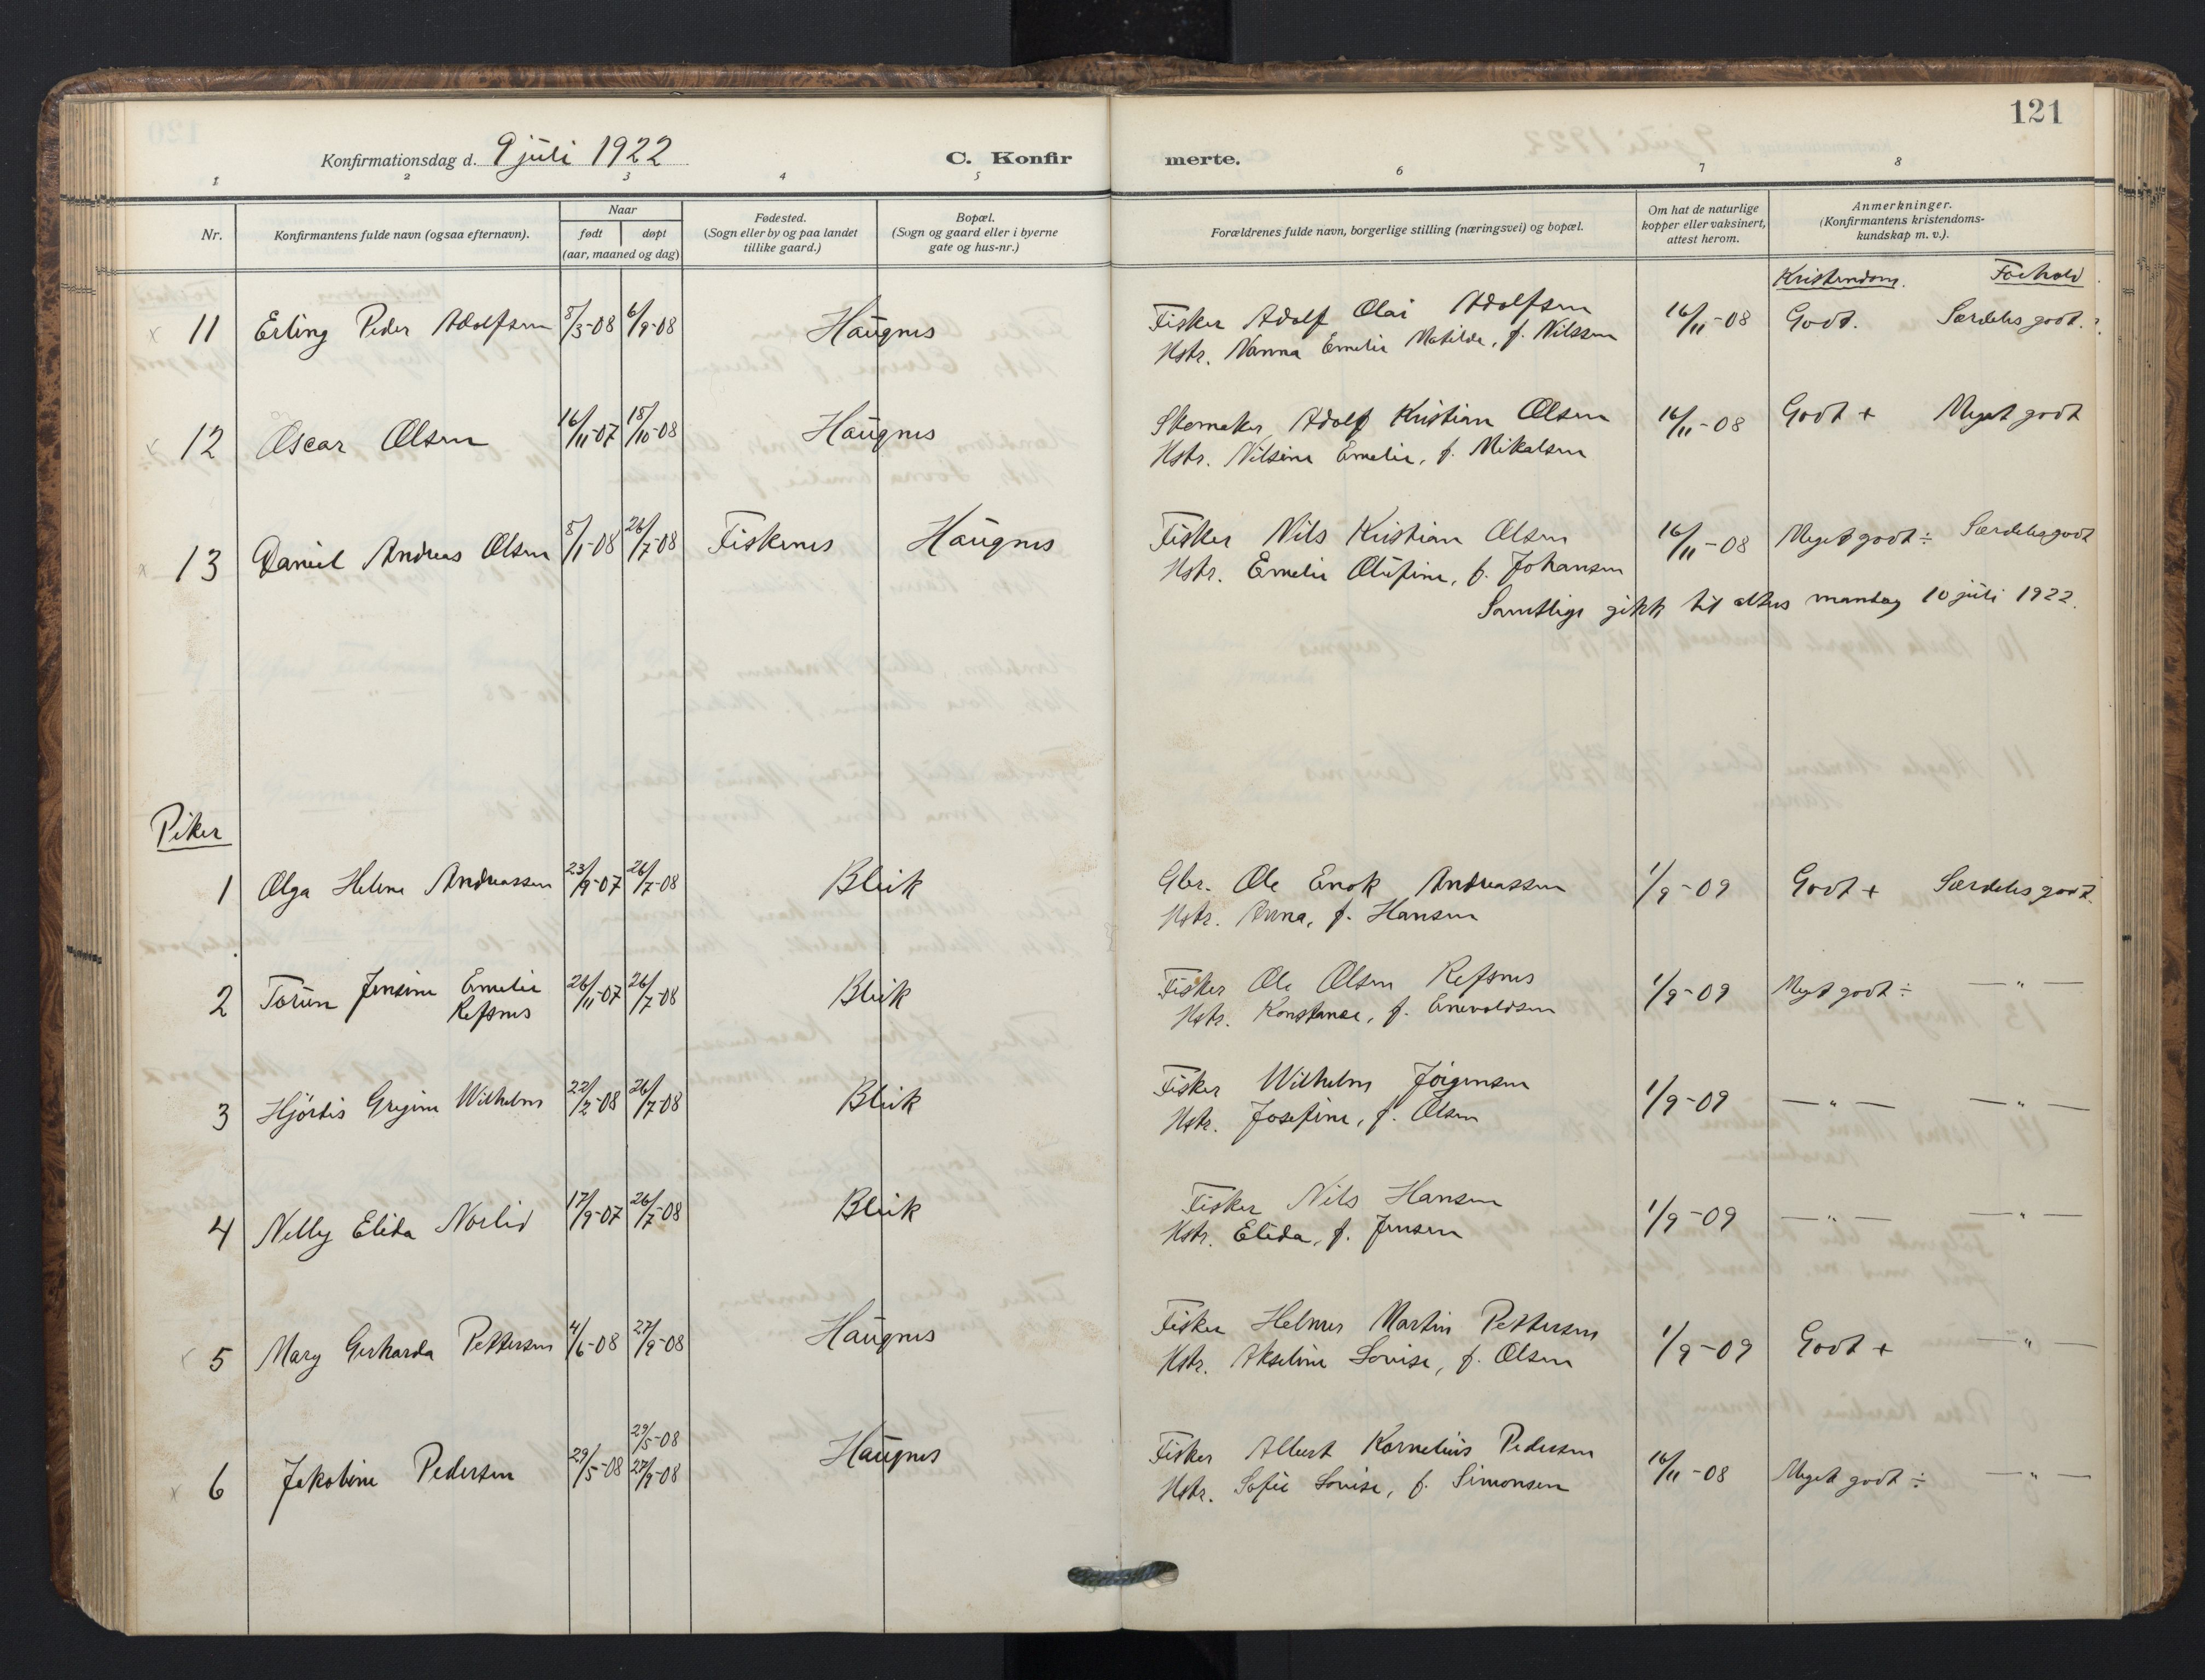 121
Konfirmationsdag d. 9 juli 1922
C. Konfirmerte.
1 2 3 4 5 6 7 8
Nr.
Konfirmantens fulde navn (ogsaa efternavn).
Naar
født døpt
(aar, maaned og dag)
Fødested.
(Sogn eller by og paa landet
tillike gaard.)
Bopæl.
(Sogn og gaard eller i byerne
gate og hus-nr.)
Forældrenes fulde navn, borgerlige stilling (næringsvei) og bopæl.
Om hat de naturlige
kopper eller vaksinert,
attest herom.
Anmerkninger.
(Konfirmantens kristendoms-
kundskap m. v.).
Kristendom. Forhold
11 Erling Peder Adolfsen 8/3-08 6/9-08 Haugnes Fisker Adolf Olai Adolfsen 16/11-08 Godt. Særdeles godt.
Hstr. Nanna Emelie Matilde, f. Nilssen
12 Oscar Olsen 16/11-07 18/10-08 Haugnes Skomaker Adolf Kristian Olsen 16/11-08 Godt + Meget godt
Hstr. Nilsine Emelie, f. Mikalsen
13 Daniel Andreas Olsen 8/1-08 26/7-08 Fiskenes Haugnes Fisker Nils Kristian Olsen 16/11-08 Meget godt ÷ Særdeles godt
Hstr. Emelie Olufine, f. Johansen
Samtlige gikk til alters mandag 10 juli 1922.
Piker
1 Olga Helene Andreassen 23/9-07 26/7-08 Bleik Gbr. Ole Enok Andreassen 1/9-09 Godt + Særdeles godt.
Hstr. Anna, f. Hansen
2 Torun Jensine Emelie 26/11-07 26/7-08 Bleik Fisker Ole Olsen Refsnes 1/9-09 Meget godt ÷ — " —
Refsnes Hstr. Konstanse, f. Enevoldsen
3 Hjørdis Gryine Wilhelms 22/2-08 26/7-08 Bleik Fisker Wilhelm Jørgensen 1/9-09 — " — — " —
Hstr. Josefine, f. Olsen
4 Nelly Elida Norlid 17/9-07 26/7-08 Bleik Fisker Nils Hansen 1/9-09 — " — — " —
Hstr. Elida, f. Jensen
5 Mary Gerharda Pettersen 4/6-08 27/9-08 Haugnes Fisker Helmer Martin Pettersen 1/9-09 Godt + — " —
Hstr. Akseline Lovise, f. Olsen
29/5-08
6 Jakobine Pedersen 29/5-08 27/9-08 Haugnes Fisker Albert Kornelius Pedersen 16/11-08 Meget godt ÷ — " —
Hstr. Sofie Lovise, f. Simonsen